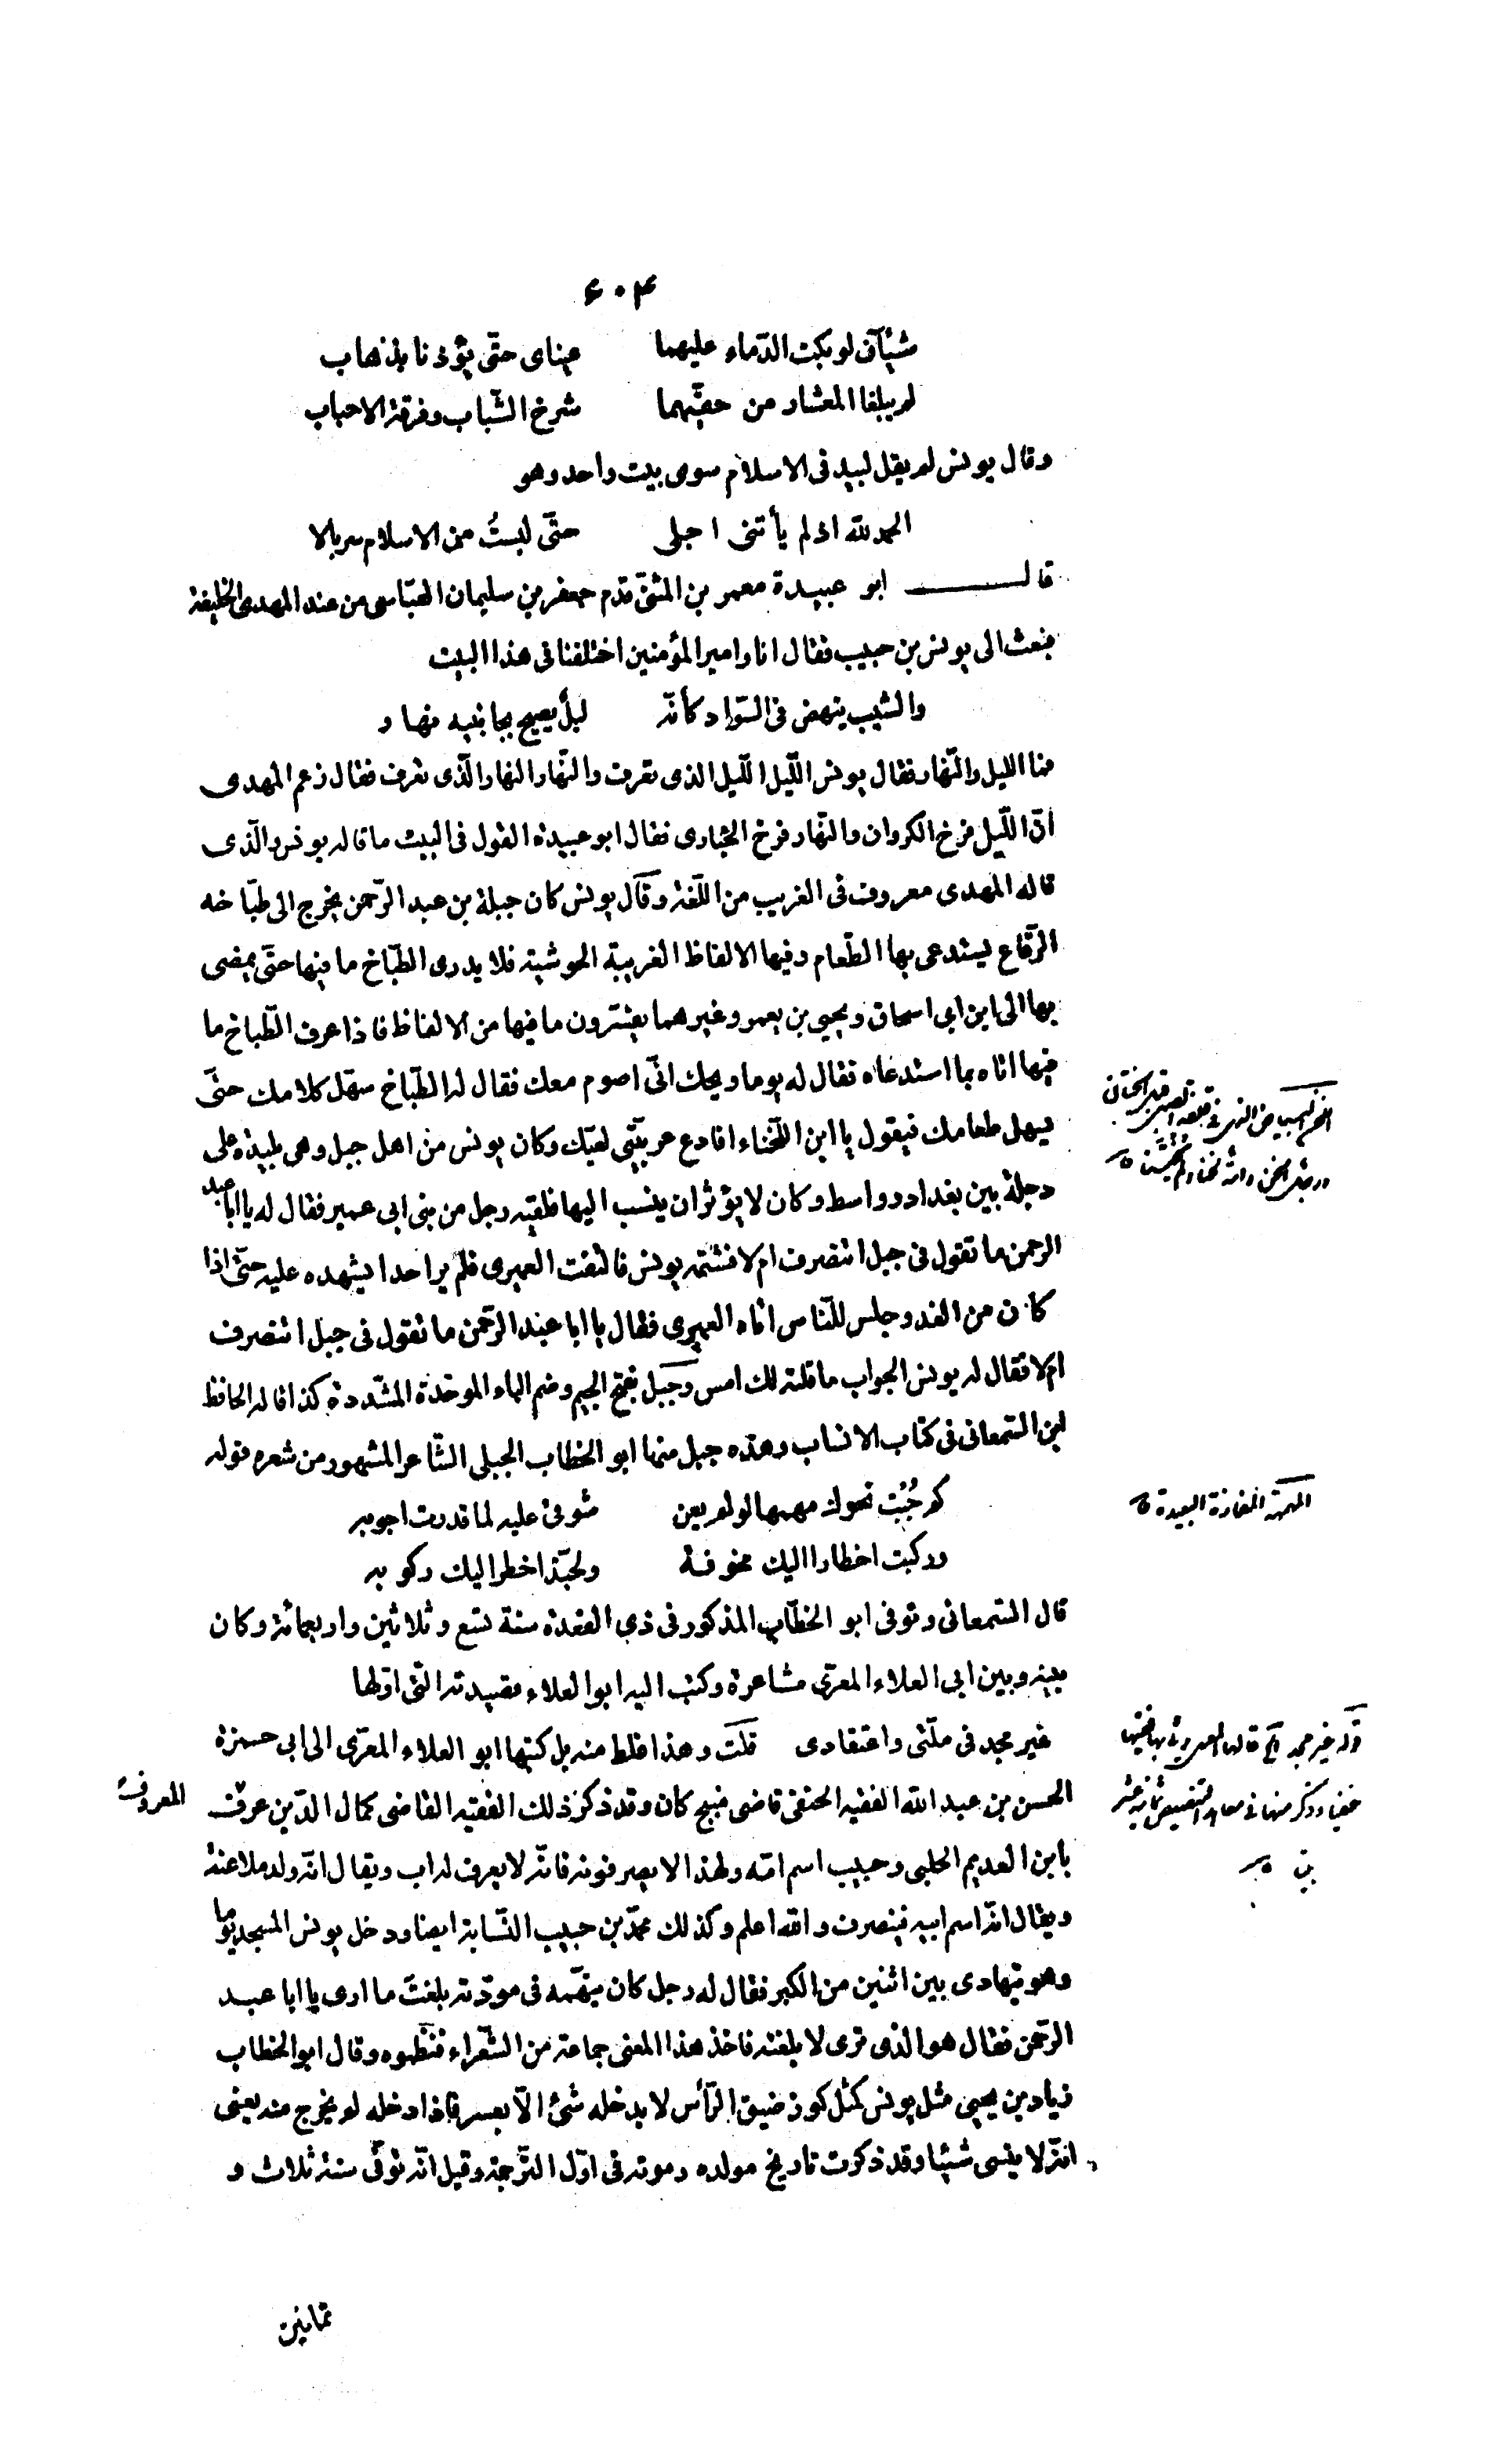 ۶۰۴
شيئآن لو بكت الدّماء عليهما عيناى حتّى يؤذنا بذهاب
لم يبلغا المعشار من حقّيهما شرخ الشّباب وفرقة الاحباب
وقال يونس لم يقل لبيد فى الاسلام سوى بيت واحد وهو
الحمد لله اذ لم يأتنى اجلى حتّى لبستُ من الاسلام سربالا
قال ابو عبيدة معمر بن المثنّى قدم جعفر بن سليمان العبّاسى من عند المهدى الخليفة
فبعث الى يونس بن حبيب فقال انا وامير المؤمنين اختلفنا فى هذا البيت
والشيب ينهض فى السّواد كأنّه ليل يصيح بجانبيه نهار
فما الليل والنّهار فقال يونس اللّيل اللّيل الذى تعرف والنّهار النهار الّذى تعرف فقال زعم المهدى
انّ اللّيل فرخ الكروان والنّهار فرخ الحبارى فقال ابو عبيدة القول فى البيت ما قاله يونس والّذى
قاله المهدى معروف فى الغريب من اللّغة وقال يونس كان جبلة بن عبد الرّحمن يخرج الى طبّاخه
الرّقاع يستدعى بها الطّعام وفيها الالفاظ الغريبة الحوشية فلا يدرى الطبّاخ ما فيها حتّى يمضى
بها الى ابن ابى اسحاق ويحيى بن يعمر وغيرهما يفسّرون ما فيها من الالفاظ فاذا عرف الطّباخ ما
فيها اتاه بما استدعاه فقال له يوما ويحك انّى اصوم معك فقال له الطبّاخ سهّل كلامك حتّى
يسهل طعامك فيقول يا ابن اللّخناء افادع عربيّتى لعيّك وكان يونس من اهل جبل وهى بليدة على
دجلة بين بغداد وواسط وكان لا يؤثر ان ينسب اليها فلقيه رجل من بنى ابى عمير فقال له يا ابا عبد
الرحمن ما تقول فى جبل اتنصرف ام لا فشتمه يونس فالتفت العميرى فلم ير احدا يشهده عليه حتّى اذا
كان من الغد وجلس للنّاس اتاه العميرى فقال يا ابا عبد الرّحمن ما تقول فى جبل اتنصرف
ام لا فقال له يونس الجواب ما قلته لك امس وجبّل بفتح الجيم وضم الباء الموحّدة المشدّدة كذا قاله الحافظ
ابن السّمعانى فى كتاب الانساب وهذه جبل منها ابو الخطاب الجبلى الشّاعر المشهور من شعره قوله
كم جُبْتُ نحوك مهمها لو لم يعن شوقى عليه لما قدرت اجوبه
وركبت اخطارا اليك مخوفة ولحبّذا خطر اليك ركوبه
قال السّمعانى وتوفى ابو الخطّاب المذكور فى ذى القعدة سنة تسع وثلاثين واربعمائة وكان
بينه وبين ابى العلاء المعرّى مشاعرة وكتب اليه ابو العلاء قصيدته الّتى اوّلها
غير مجد فى ملّتى واعتقادى قلت وهذا غلط منه بل كتبها ابو العلاء المعرّى الى ابى حمزة
الحسن بن عبد الله الفقيه الحنفى قاضى منبج كان وقد ذكر ذلك الفقيه القاضى كمال الدّين عرف
المعروف
بابن العديم الحلبى وحبيب اسم امّه ولهذا لا يصرفونه فانّه لا يعرف له اب ويقال انّه ولد ملاعنة
ويقال انّه اسم ابيه فينصرف والله اعلم وكذلك محمّد بن حبيب النّسّابة ايضا ودخل يونس المسجد يوما
وهو يتهادى بين اثنين من الكبر فقال له رجل كان يتّهمه فى مودّته بلغتَ ما ارى يا ابا عبد
الرّحمن فقال هو الذى ترى لا بلغته فاخذ هذا المعنى جماعة من الشّعراء فنظموه وقال ابو الخطاب
زياد بن يحيى مثل يونس كمثل كوز ضيق الرّأس لا يدخله شئ الّا بعسر فاذا دخله لم يخرج منه يعنى
انّه لا ينسى شيئا وقد ذكرت تاريخ مولده وموته فى اوّل التّرجمة وقيل انّه توفّى سنة ثلاث و
ثمانين
المهمه المفازة البعيدة
قوله غير مجد
بيت